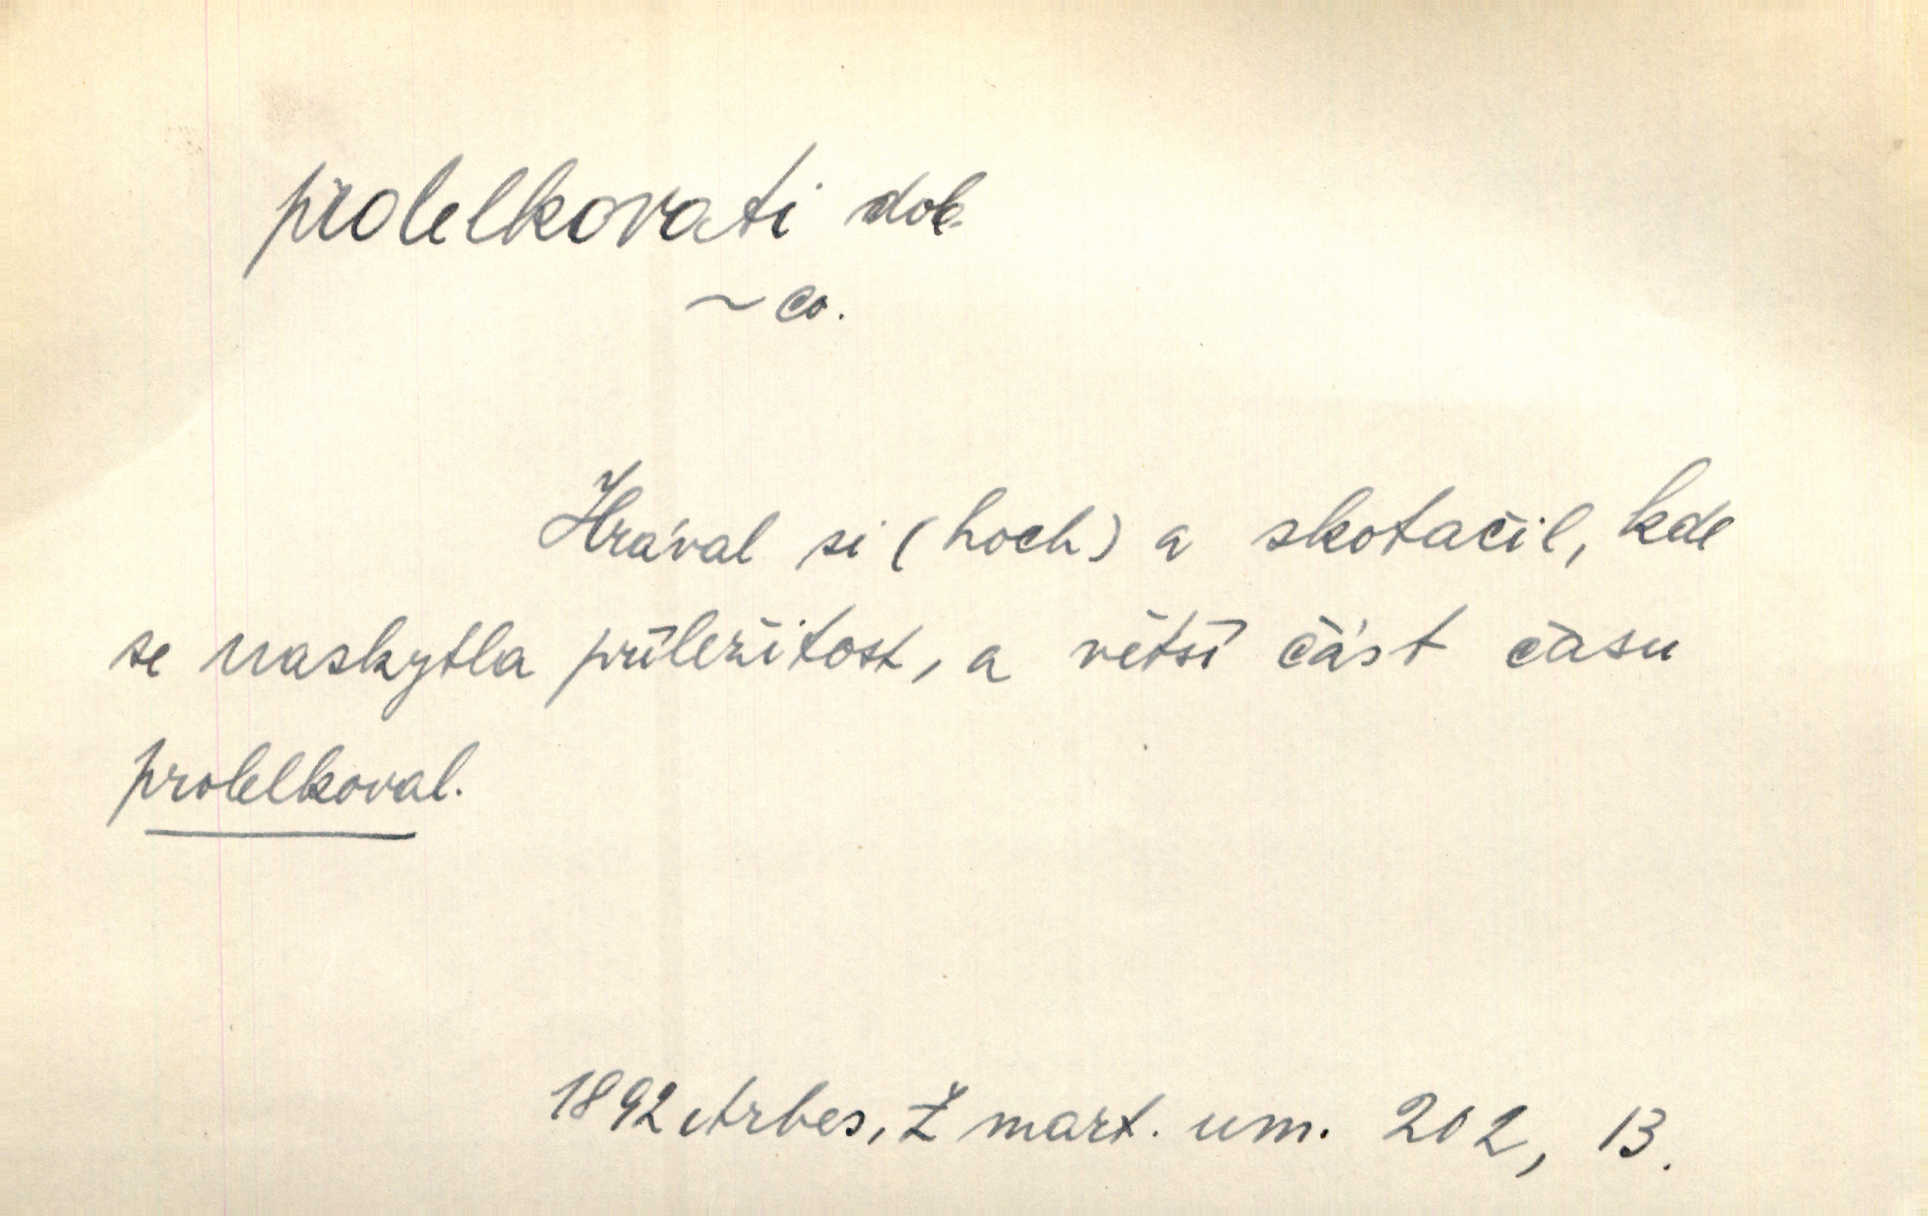 prolelkovati dok.
~ co.
Hrával si (hoch) a skotačil, kde
se naskytla příležitost, a větší část času
prolelkoval.
1892 Arbes, Z mart. um. 202, 13.